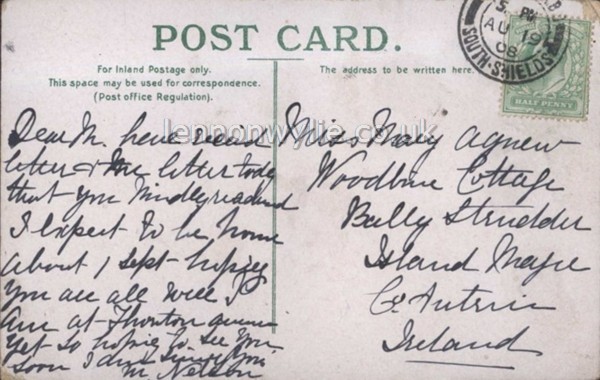 POST CARD.
For Inland Postage only.
This space may be used for correspondence.
(Post office Regulation).
The address to be written here.
5. PM
AU 19
08
SOUTH SHIELDS
HALF PENNY
lennonwylie.co.uk
Dear M. have recived
letter & letter today
that you kindly
I expect to be home
about 1 Sept - hoping
you are all well I
am at Thornton avenue
yet so hoping to see you
soon I am
M Nelson
Miss Mary Agnew
Woodbine Cottage
Bally Strudder
Island Magee
Co Antrim
Ireland